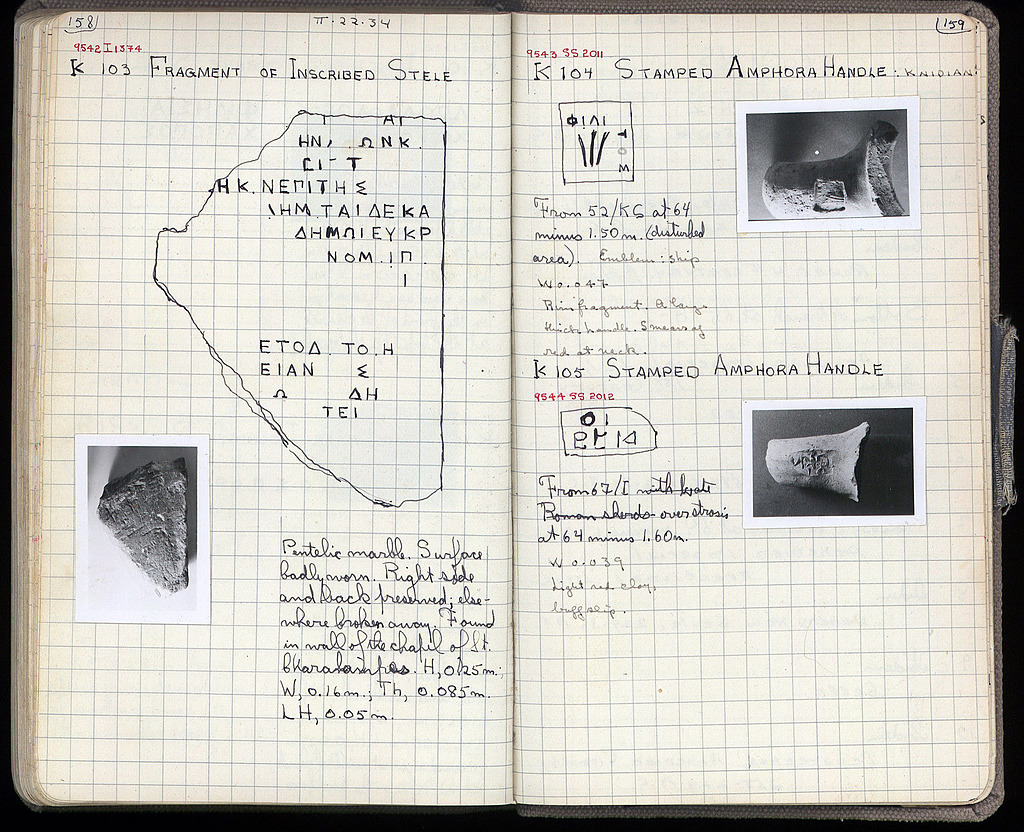 158
II·22·34
9542 I 1374
K 103 FRAGMENT OF INSCRIBED STELE
ΑΙ
ΗΝ, ΩΝΚ.
ΗΚ.ΝΕΠΙΤΗΣ
ΛΗΜ.ΤΑΙΔΕΚΑ
ΔΗΜΩΙΕΥΚΡ
ΝΟΜ.ΙΠ.
Ι
ΕΤΟΔ.ΤΟ.Η
ΕΙΑΝ Σ
Ω ΔΗ
ΤΕΙ
Pentelic marble. Surface
badly worn. Right side
and back preserved; else-
where broken away. Found
in wall of the chapel of St.
Charalampos. H, 0.25m.;
W, 0.16m.; Th, 0.085m.
LH, 0.05m.
159
9543 SS 2011
K 104 STAMPED AMPHORA HANDLE · KNIDIAN
ΦΙΛΙ
ΤΟΜ
From 52/ΚϚ at 64
minus 1.50 m. (disturbed
area). Emblem: ship
W 0.047
Rim fragment. A large
thick handle. Smears of
red at neck.
K 105 STAMPED AMPHORA HANDLE
9544 SS 2012
From 67/I with late
Roman sherds over strosis
at 64 minus 1.60m.
W 0.039
Light red clay,
buff slip.